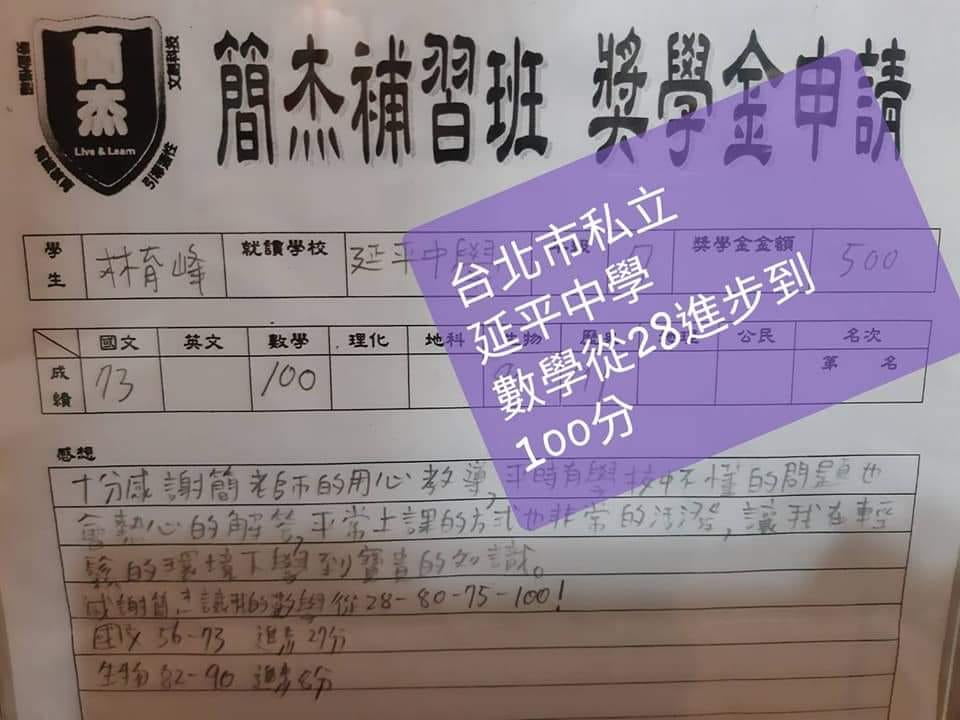 簡杰
Live & Learn
簡杰補習班 獎學金申請
學生 林育峰 就讀學校 延平中學 7 獎學金金額 500
台北市私立
延平中學
數學從28進步到
100分
國文 英文 數學 理化 地科 生物 公民 名次
成績 73 100 第 名
感想
十分感謝簡老師的用心教導,平時有學校中不懂的問題也
會熱心的解答,平常上課的方式也非常的活潑,讓我在輕
鬆的環境下學到寶貴的知識。
感謝簡杰讓我的數學從28-80-75-100!
國文 56-73 進步27分
生物 82-90 進步8分